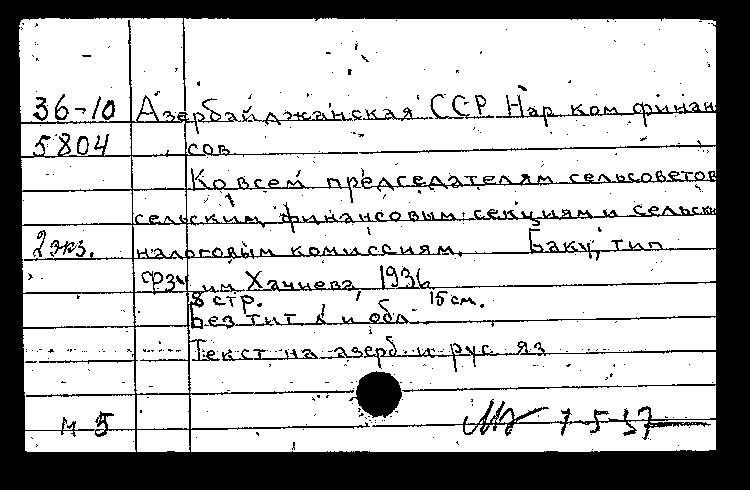 36-10 Азербайджанская ССР Нар ком финан
5804 сов
Ко всем председателям сельсоветов
сельским, финансовым секциям и сельски
2 экз. налоговым комиссиям. Баку, тип
ФЗУ им Хачиева, 1936
8 стр. 15 см.
Без тит л и обл
Текст на азерб и рус яз
м 5 7-5-37